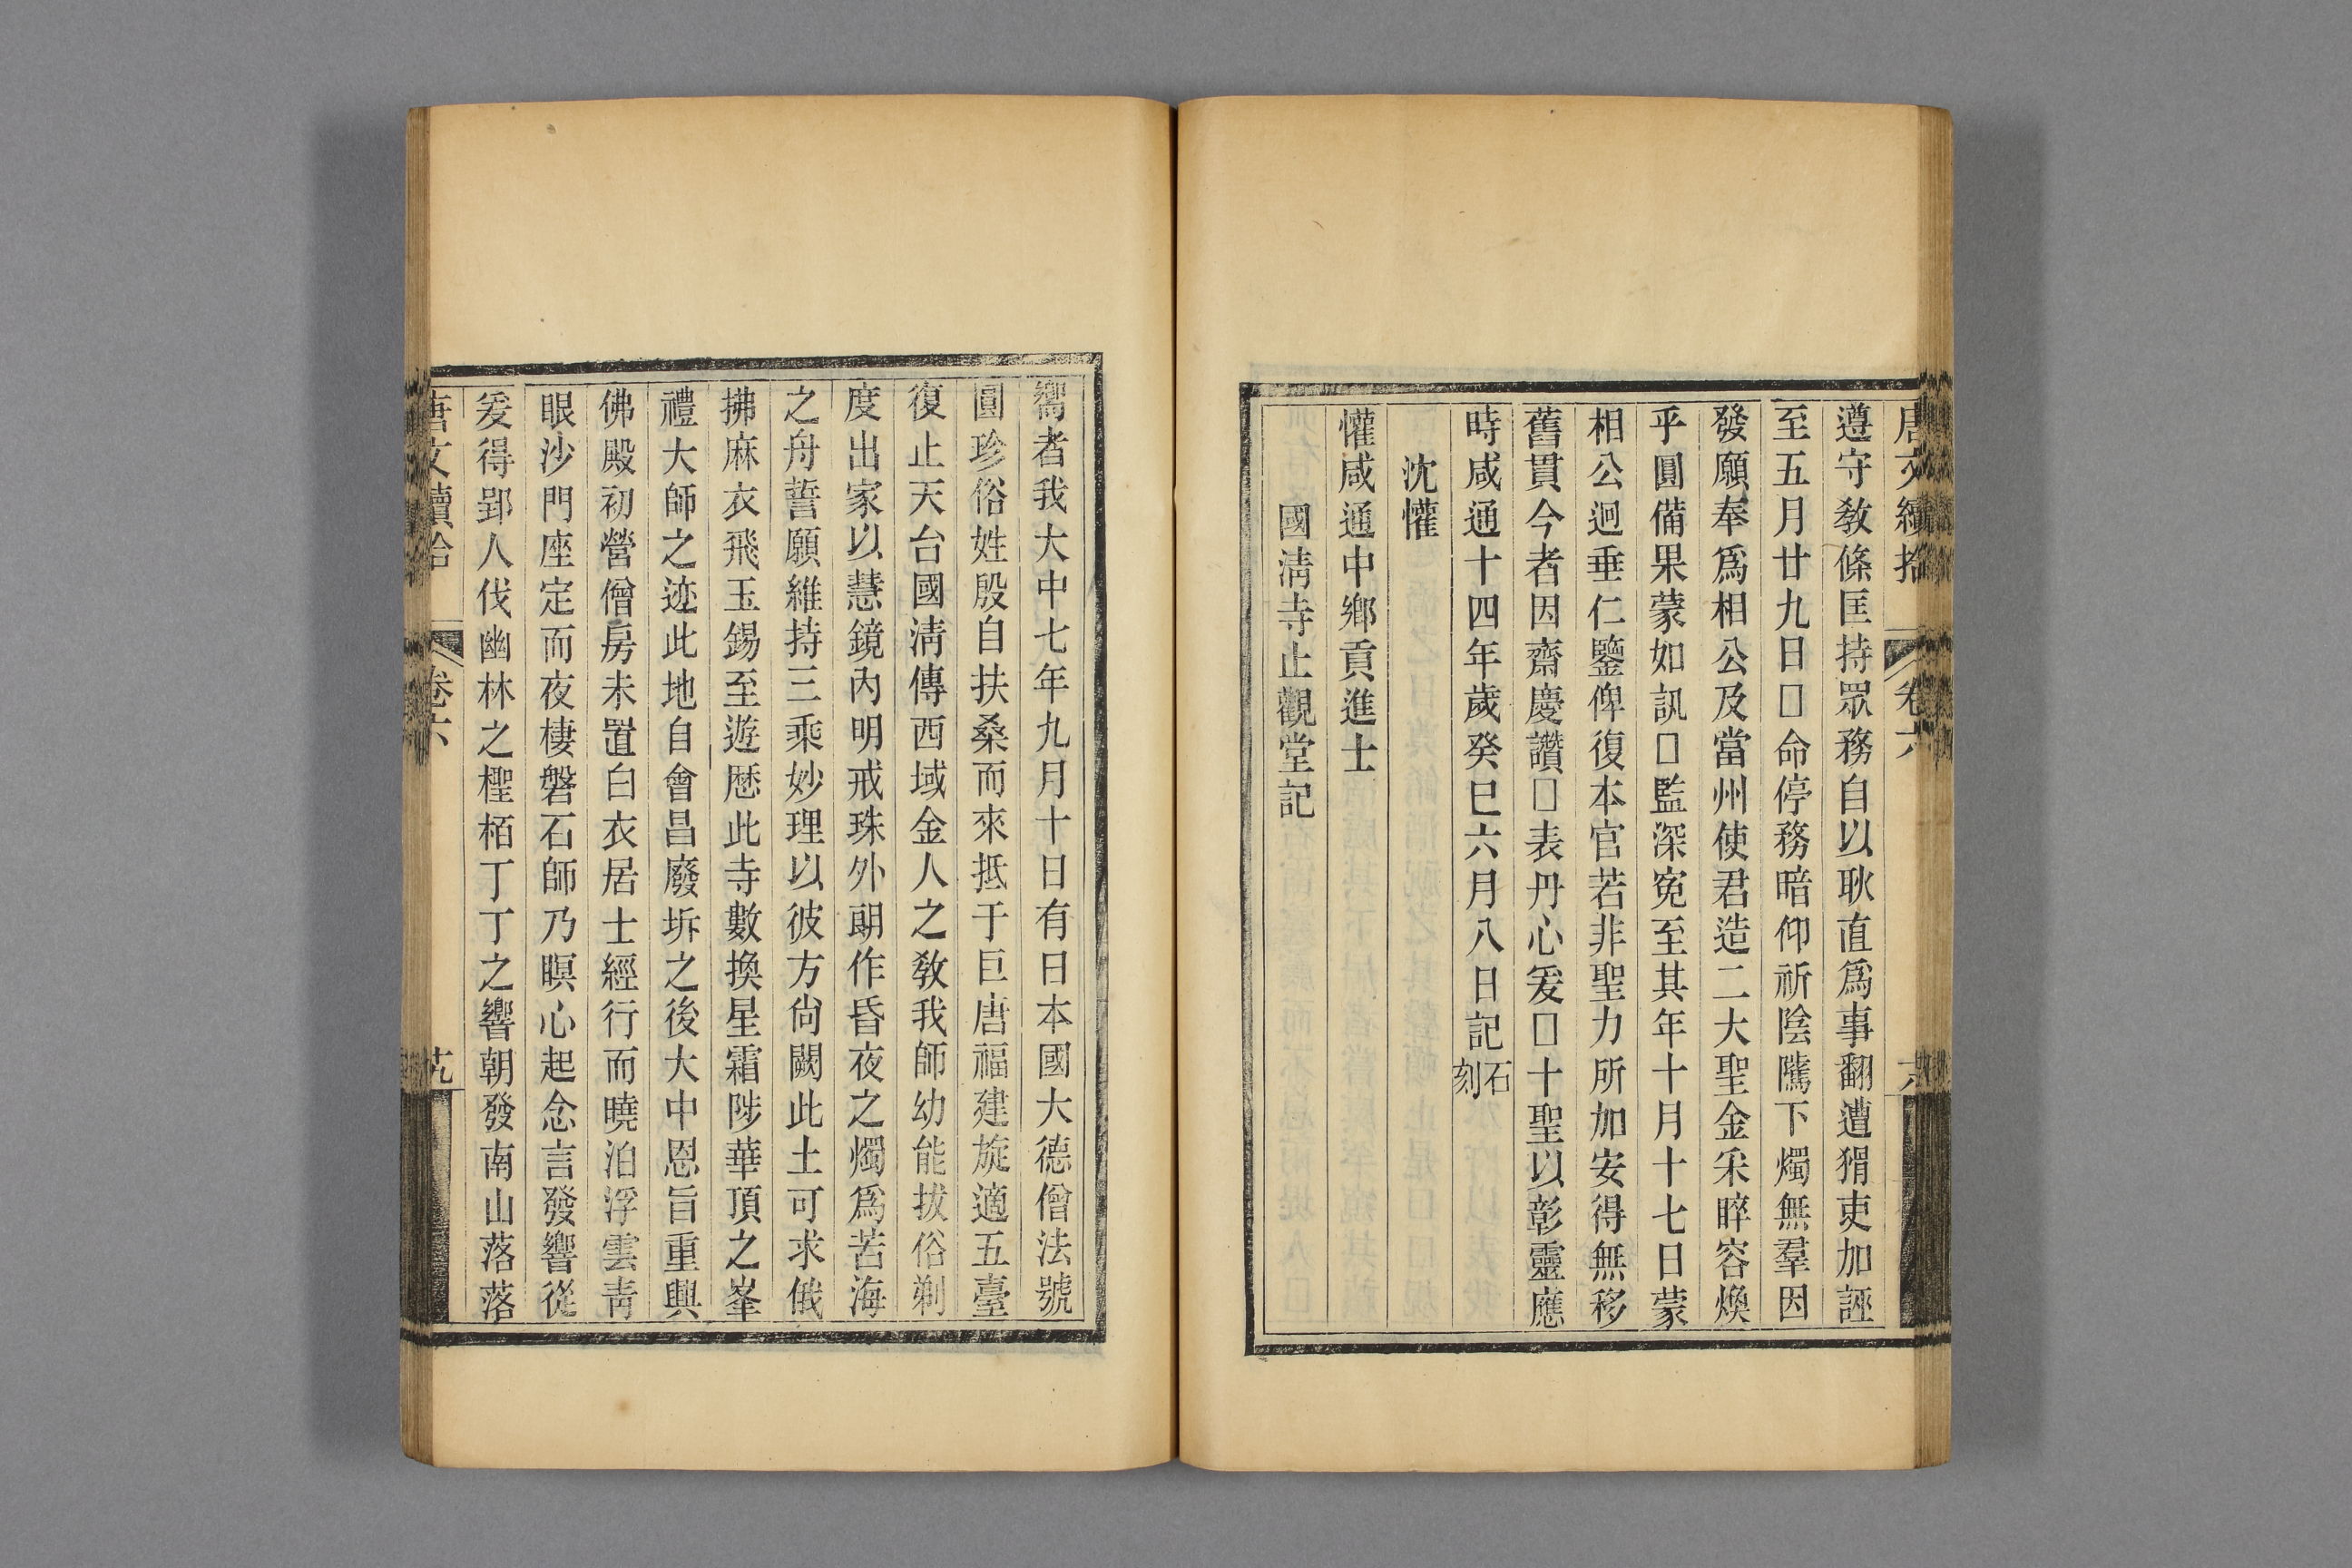 唐文續拾 卷六
遵守敎條匡持眾務自以耿直爲事翻遭猾吏加誣
至五月廿九日□命停務暗仰祈陰隲下燭無羣因
發願奉爲相公及當州使君造二大聖金采睟容煥
乎圓備果蒙如訊□監深寃至其年十月十七日蒙
相公迥垂仁鑒俾復本官若非聖力所加安得無移
舊貫今者因齋慶讚□表丹心爰□十聖以彰靈應
時咸通十四年歲癸巳六月八日記石刻
沈懽
懽咸通中鄉貢進士
國淸寺止觀堂記
嚮者我大中七年九月十日有日本國大德僧法號
圓珍俗姓殷自扶桑而來抵于巨唐福建旋適五臺
復止天台國淸傳西域金人之敎我師幼能拔俗剃
度出家以慧鏡內明戒珠外朗作昏夜之燭爲苦海
之舟誓願維持三乘妙理以彼方尙闕此土可求俄
拂麻衣飛玉錫至遊歷此寺數換星霜陟華頂之峯
禮大師之迹此地自會昌廢坼之後大中恩旨重興
佛殿初營僧房未置白衣居士經行而曉泊浮雲靑
眼沙門座定而夜棲磐石師乃瞑心起念言發響從
爰得郢人伐幽林之檉栢丁丁之響朝發南山落落
唐文續拾 卷六